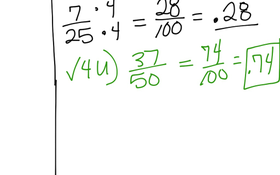 7 · 4 / 25 · 4 = 28 / 100 = .28
√4u) 37 / 50 = 74 / 100 = .74